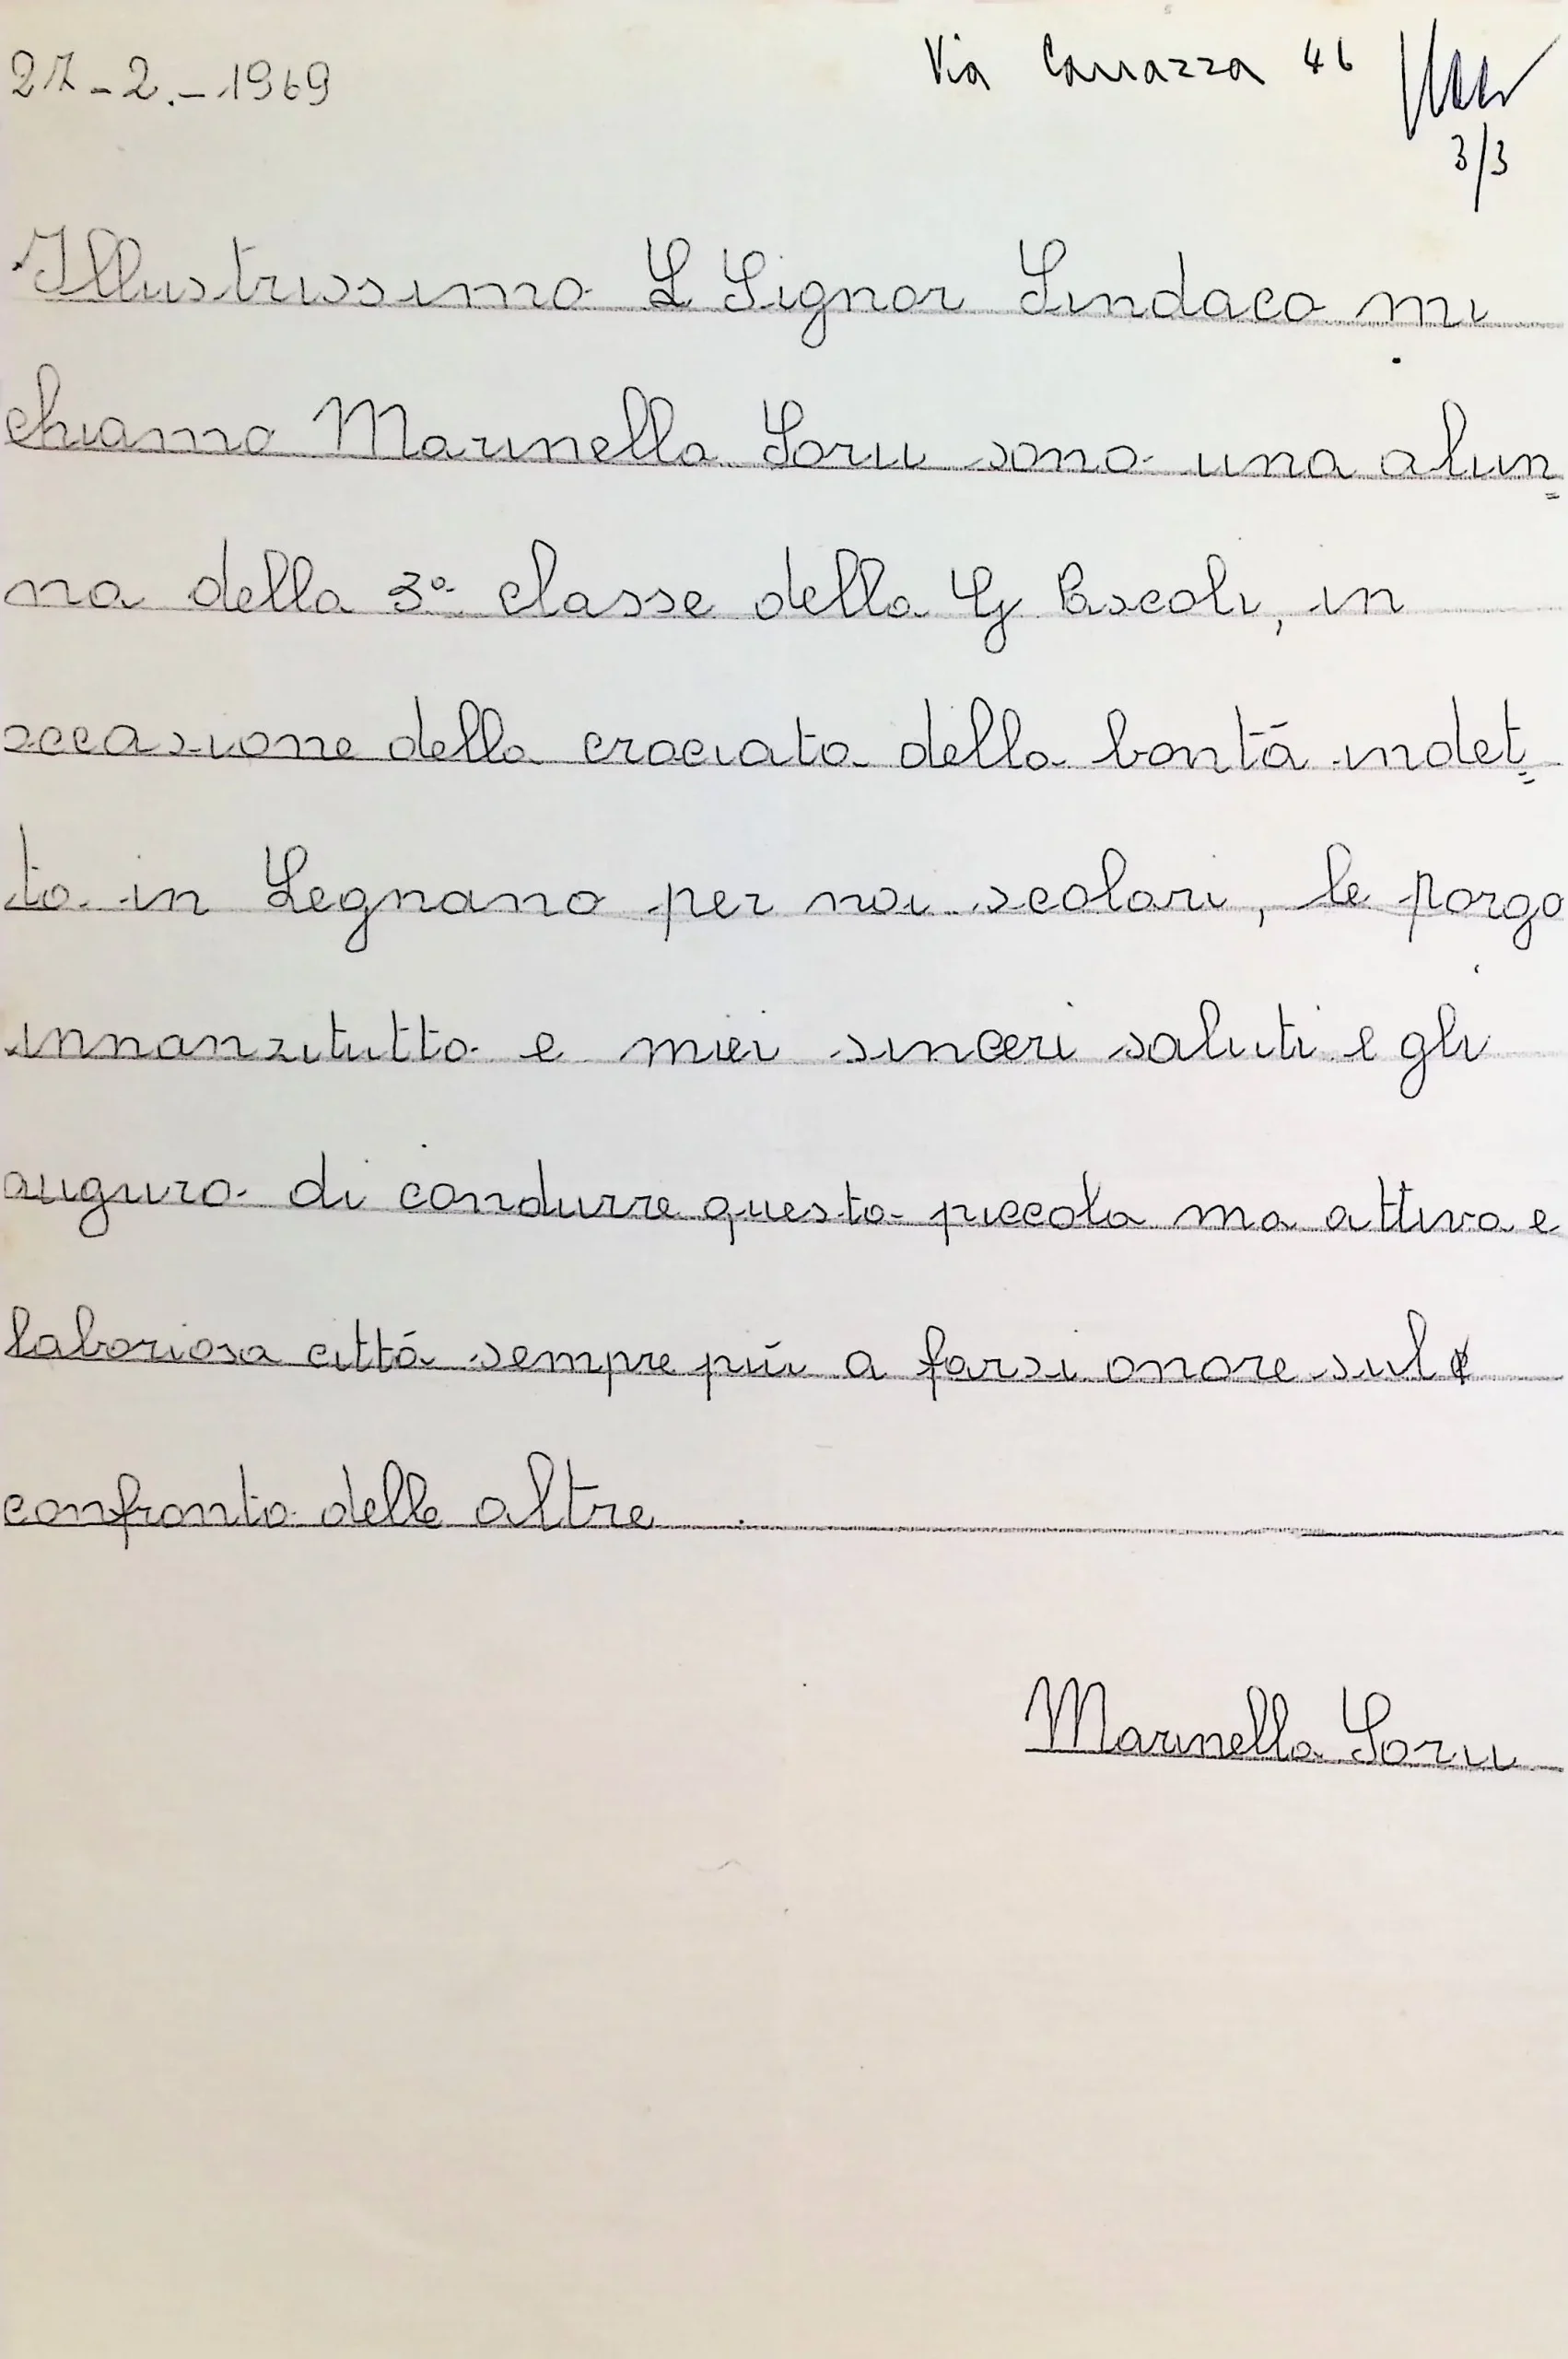 27-2.-1969
Via Carrazza 46
3/3
Illustrissimo S Signor Sindaco mi
chiamo Marinella Soru sono una alun=
na della 3ª classe della G Pascoli, in
occasione della crociata della bontà indet=
ta in Legnano per noi scolari, le porgo
innanzitutto e miei sinceri saluti e gli
auguro di condurre questa piccola ma attiva e
laboriosa città sempre più a farsi onore sul
confronto delle altre
Marinella Soru